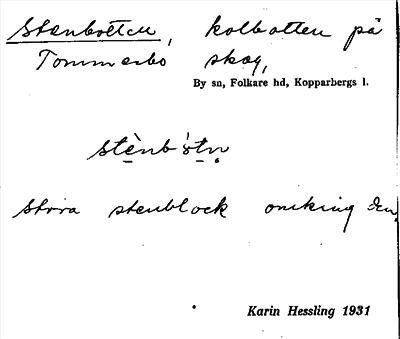 Stenbotten, kolbotten på
Tommarbo skog,
By sn, Folkare hd, Kopparbergs l.
stora stenblock omkring den.
Karin Hessling 1931